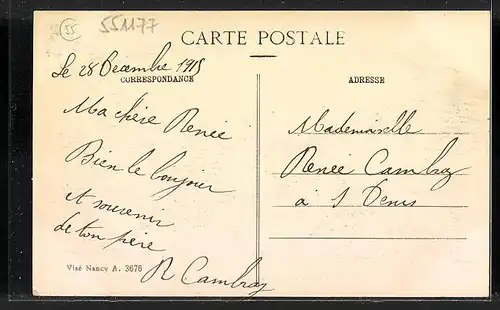 55
551177
CARTE POSTALE
Le 28 Decembre 1915
CORRESPONDANCE
ADRESSE
Ma chère Renée
Bien le bonjour
et souvenir
de ton père
R Cambray
Mademoiselle
Renée Cambray
à S Denis
Visé Nancy A. 3676